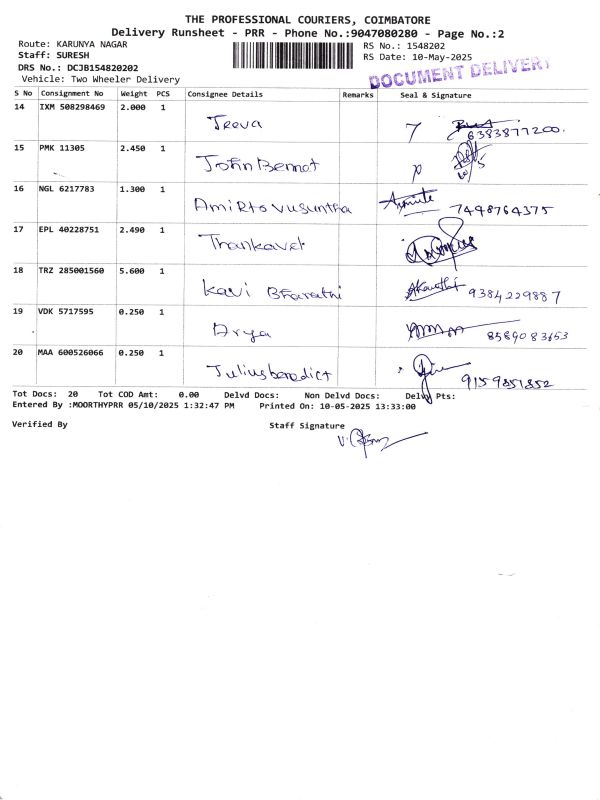 THE PROFESSIONAL COURIERS, COIMBATORE
Delivery Runsheet - PRR - Phone No.:9047080280 - Page No.:2
Route: KARUNYA NAGAR
RS No.: 1548202
Staff: SURESH
RS Date: 10-May-2025
DRS No.: DCJB154820202
DOCUMENT DELIVERY
Vehicle: Two Wheeler Delivery
S No Consignment No Weight PCS Consignee Details Remarks Seal & Signature
14 IXM 508298469 2.000 1 Jeeva 6383877200.
15 PMK 11305 2.450 1 John Bennet
16 NGL 6217783 1.300 1 Amirto vusuntha 7498764375
17 EPL 40228751 2.490 1 Thankavel
18 TRZ 285001560 5.600 1 Kavi Bharathi 9384229887
19 VDK 5717595 0.250 1 Arya 8589083653
20 MAA 600526066 0.250 1 Julius benedict 9159851852
Tot Docs: 20 Tot COD Amt: 0.00 Delvd Docs: Non Delvd Docs: Delvy Pts:
Entered By :MOORTHYPRR 05/10/2025 1:32:47 PM Printed On: 10-05-2025 13:33:00
Verified By Staff Signature